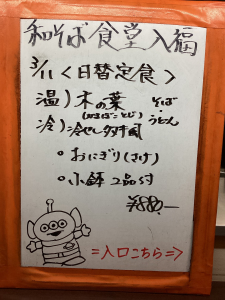 和そば食堂入福
3/11＜日替定食＞
温）木の葉 そば
(かまぼことじ)
冷）冷やし多羅 うどん
。おにぎり(さけ)
。小鉢2品付
¥880.-
=入口こちら=>